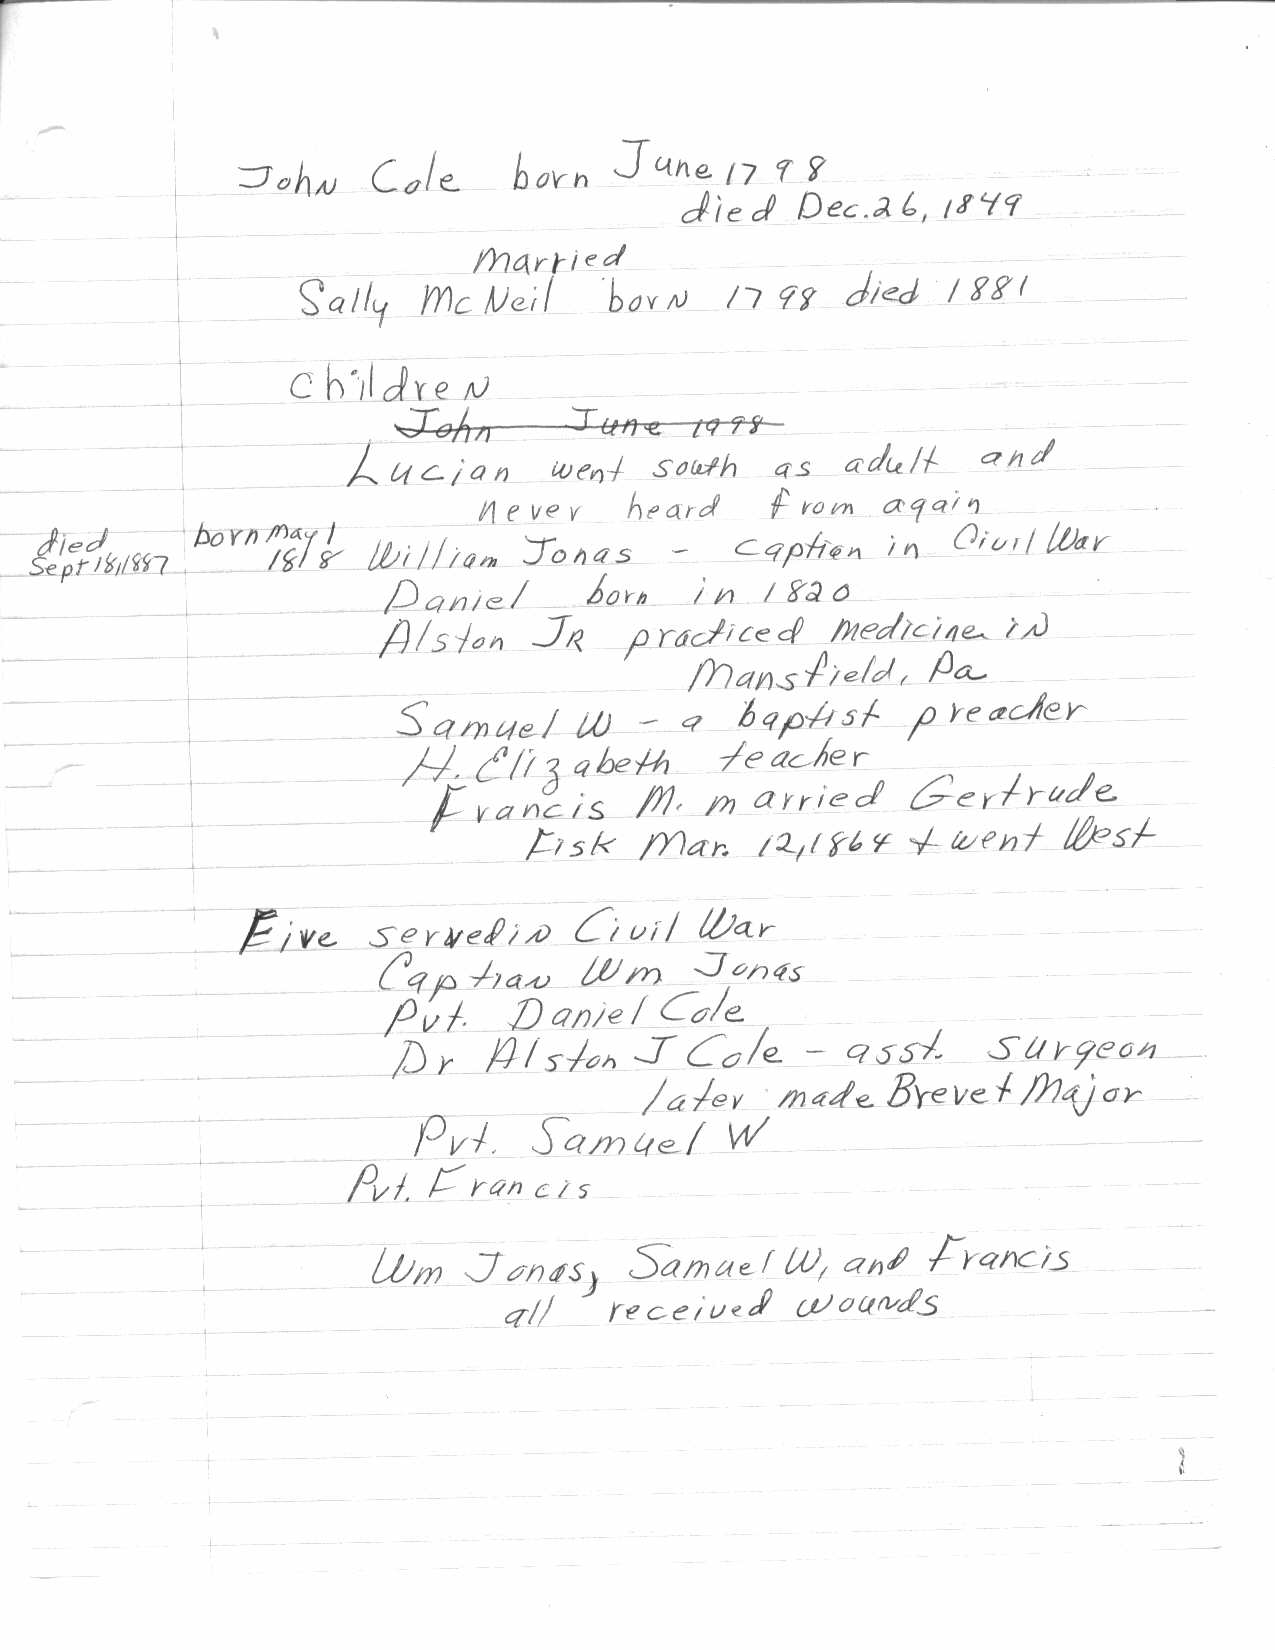 John Cole born June 1798
died Dec. 26, 1849
married
Sally McNeil born 1798 died 1881
Children
John June 1998
Lucian went south as adult and
never heard from again
died Sept 18, 1887 born May 1 1818 William Jonas - Captien in Civil War
Daniel born in 1820
Alston JR practiced medicine in
Mansfield, Pa
Samuel W - a baptist preacher
H. Elizabeth teacher
Francis M. married Gertrude
Fisk Mar. 12, 1864 + went West
Five served in Civil War
Captian Wm Jonas
Pvt. Daniel Cole
Dr Alston J Cole - asst. surgeon
later made Brevet Major
Pvt. Samuel W
Pvt. Francis
Wm Jonas, Samuel W, and Francis
all received wounds